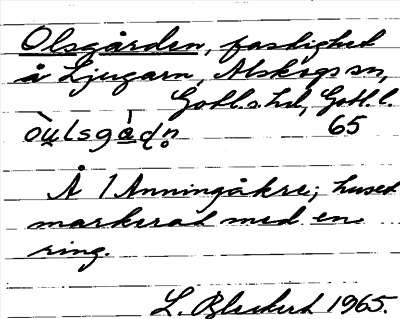 Olsgården, fastighet
å Ljugarn, Alskogs sn,
Gotl.s. hd, Gotl. l.
òu̯lsgà̱dn̥ 65
Å 1 Anningåkre; huset
markerat med en
ring.
L. 1965.